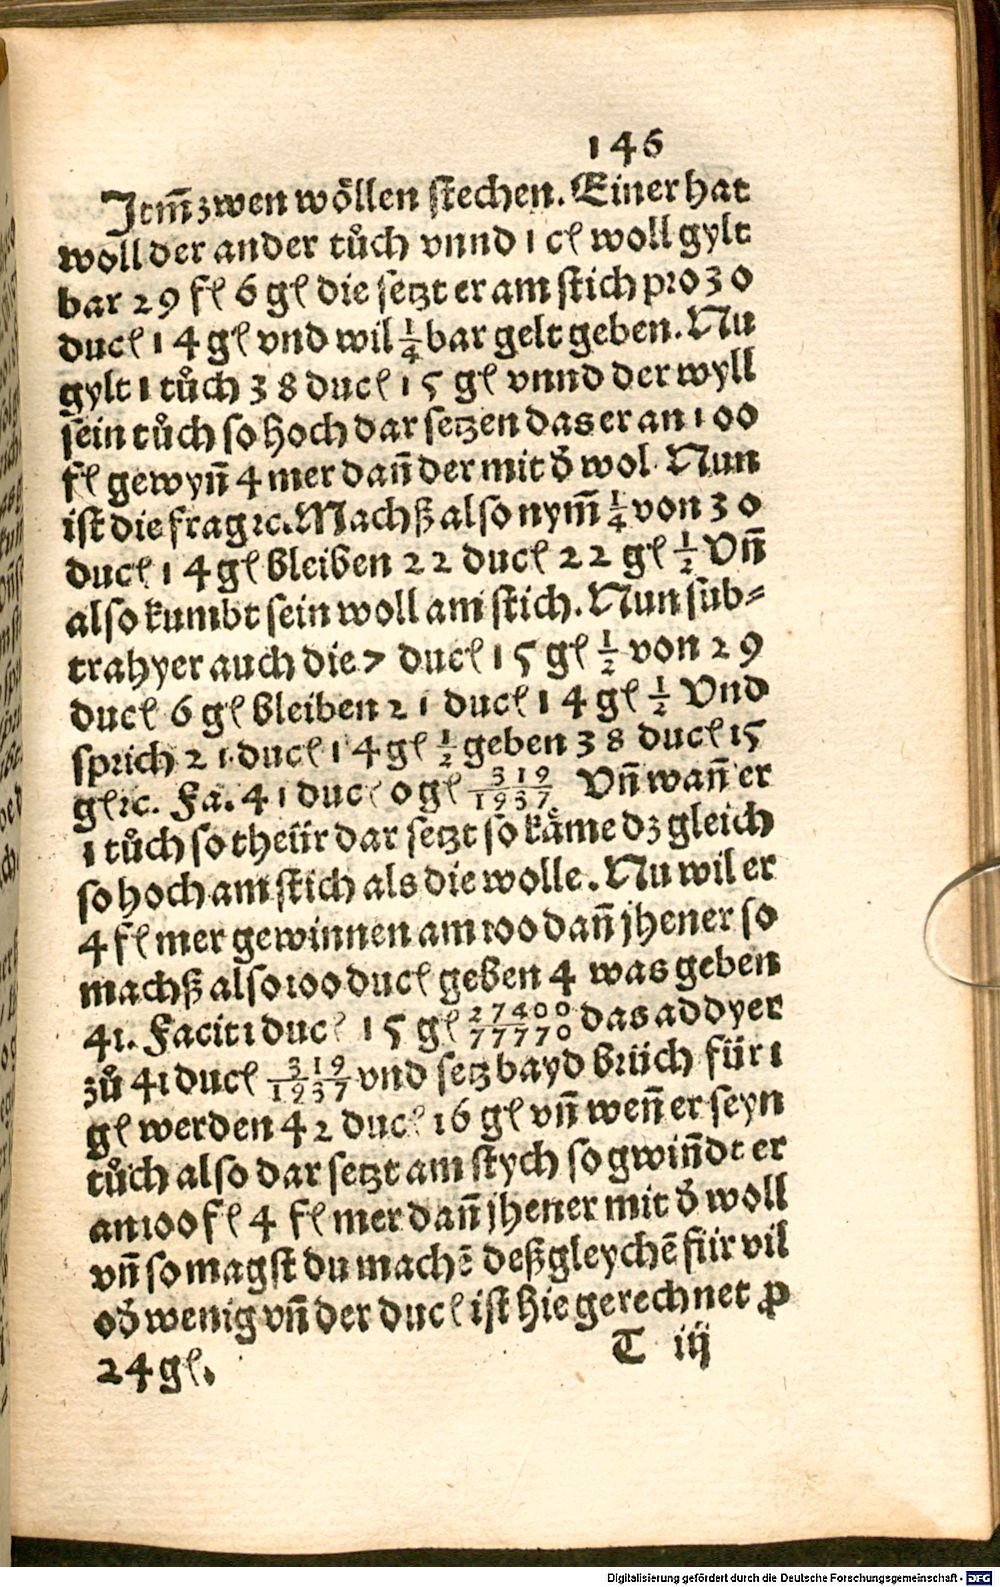 146
Jtm̄ zwen wöllen stechen. Einer hat
woll der ander tůch vnnd 1 cl woll gylt
bar 29 fl 6 gl die setzt er am stich pro 30
ducl 14 gl vnd wil 1/4 bar gelt geben. Nu
gylt 1 tůch 38 ducl 15 gl vnnd der wyll
sein tůch so hoch dar setzen das er an 100
fl gewyn̄ 4 mer dan̄ der mit d̄ wol. Nun
ist die frag ꝛc. Machß also nym̄ 1/4 von 30
ducl 14 gl bleiben 22 ducl 22 gl 1/2 Vn̄
also kumbt sein woll am stich. Nun sub⸗
trahyer auch die 7 ducl 15 gl 1/2 von 29
ducl 6 gl bleiben 21 ducl 14 gl 1/2 Vnd
sprich 21 ducl 14 gl 1/2 geben 38 ducl 15
gl ꝛc. Fa. 41 ducl 0 gl 319/1937. Vn̄ wan̄ er
1 tůch so theür dar setzt so kåme dz gleich
so hoch am stich als die wolle. Nu wil er
4 fl mer gewinnen am 100 dan̄ jhener so
machß also 100 ducl geben 4 was geben
41. Facit 1 ducl 15 gl 27400/77770 das addyer
zů 41 ducl 319/1937 vnd setz bayd brüch für 1
gl werden 42 ducl 16 gl vn̄ wen̄ er seyn
tůch also dar setzt am stych so gwin̄dt er
an 100 fl 4 fl mer dan̄ jhener mit d̄ woll
vn̄ so magst du machē deßgleychē für vil
od̄ wenig vn̄ der ducl ist hie gerechnet ꝓ
24 gl.
T iij
Digitalisierung gefördert durch die Deutsche Forschungsgemeinschaft - DFG